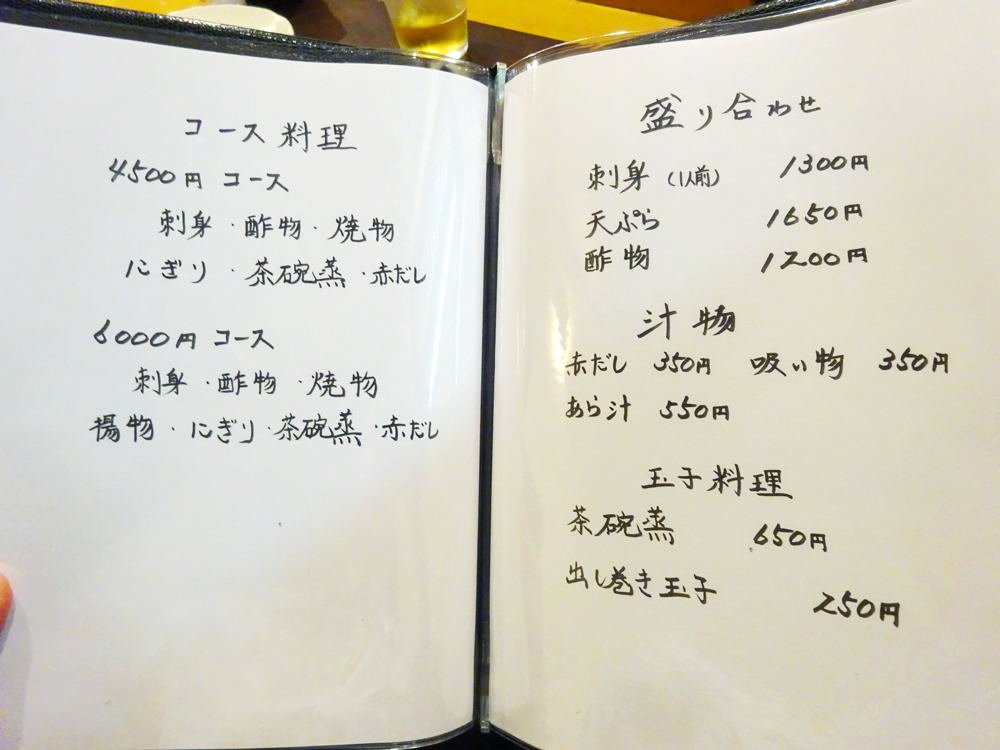 コース料理
4500円 コース
刺身・酢物・焼物
にぎり・茶碗蒸・赤だし
6000円 コース
刺身・酢物・焼物
揚物・にぎり・茶碗蒸・赤だし
盛り合わせ
刺身(1人前) 1300円
天ぷら 1650円
酢物 1200円
汁物
赤だし 350円 吸い物 350円
あら汁 550円
玉子料理
茶碗蒸 650円
出し巻き玉子 250円